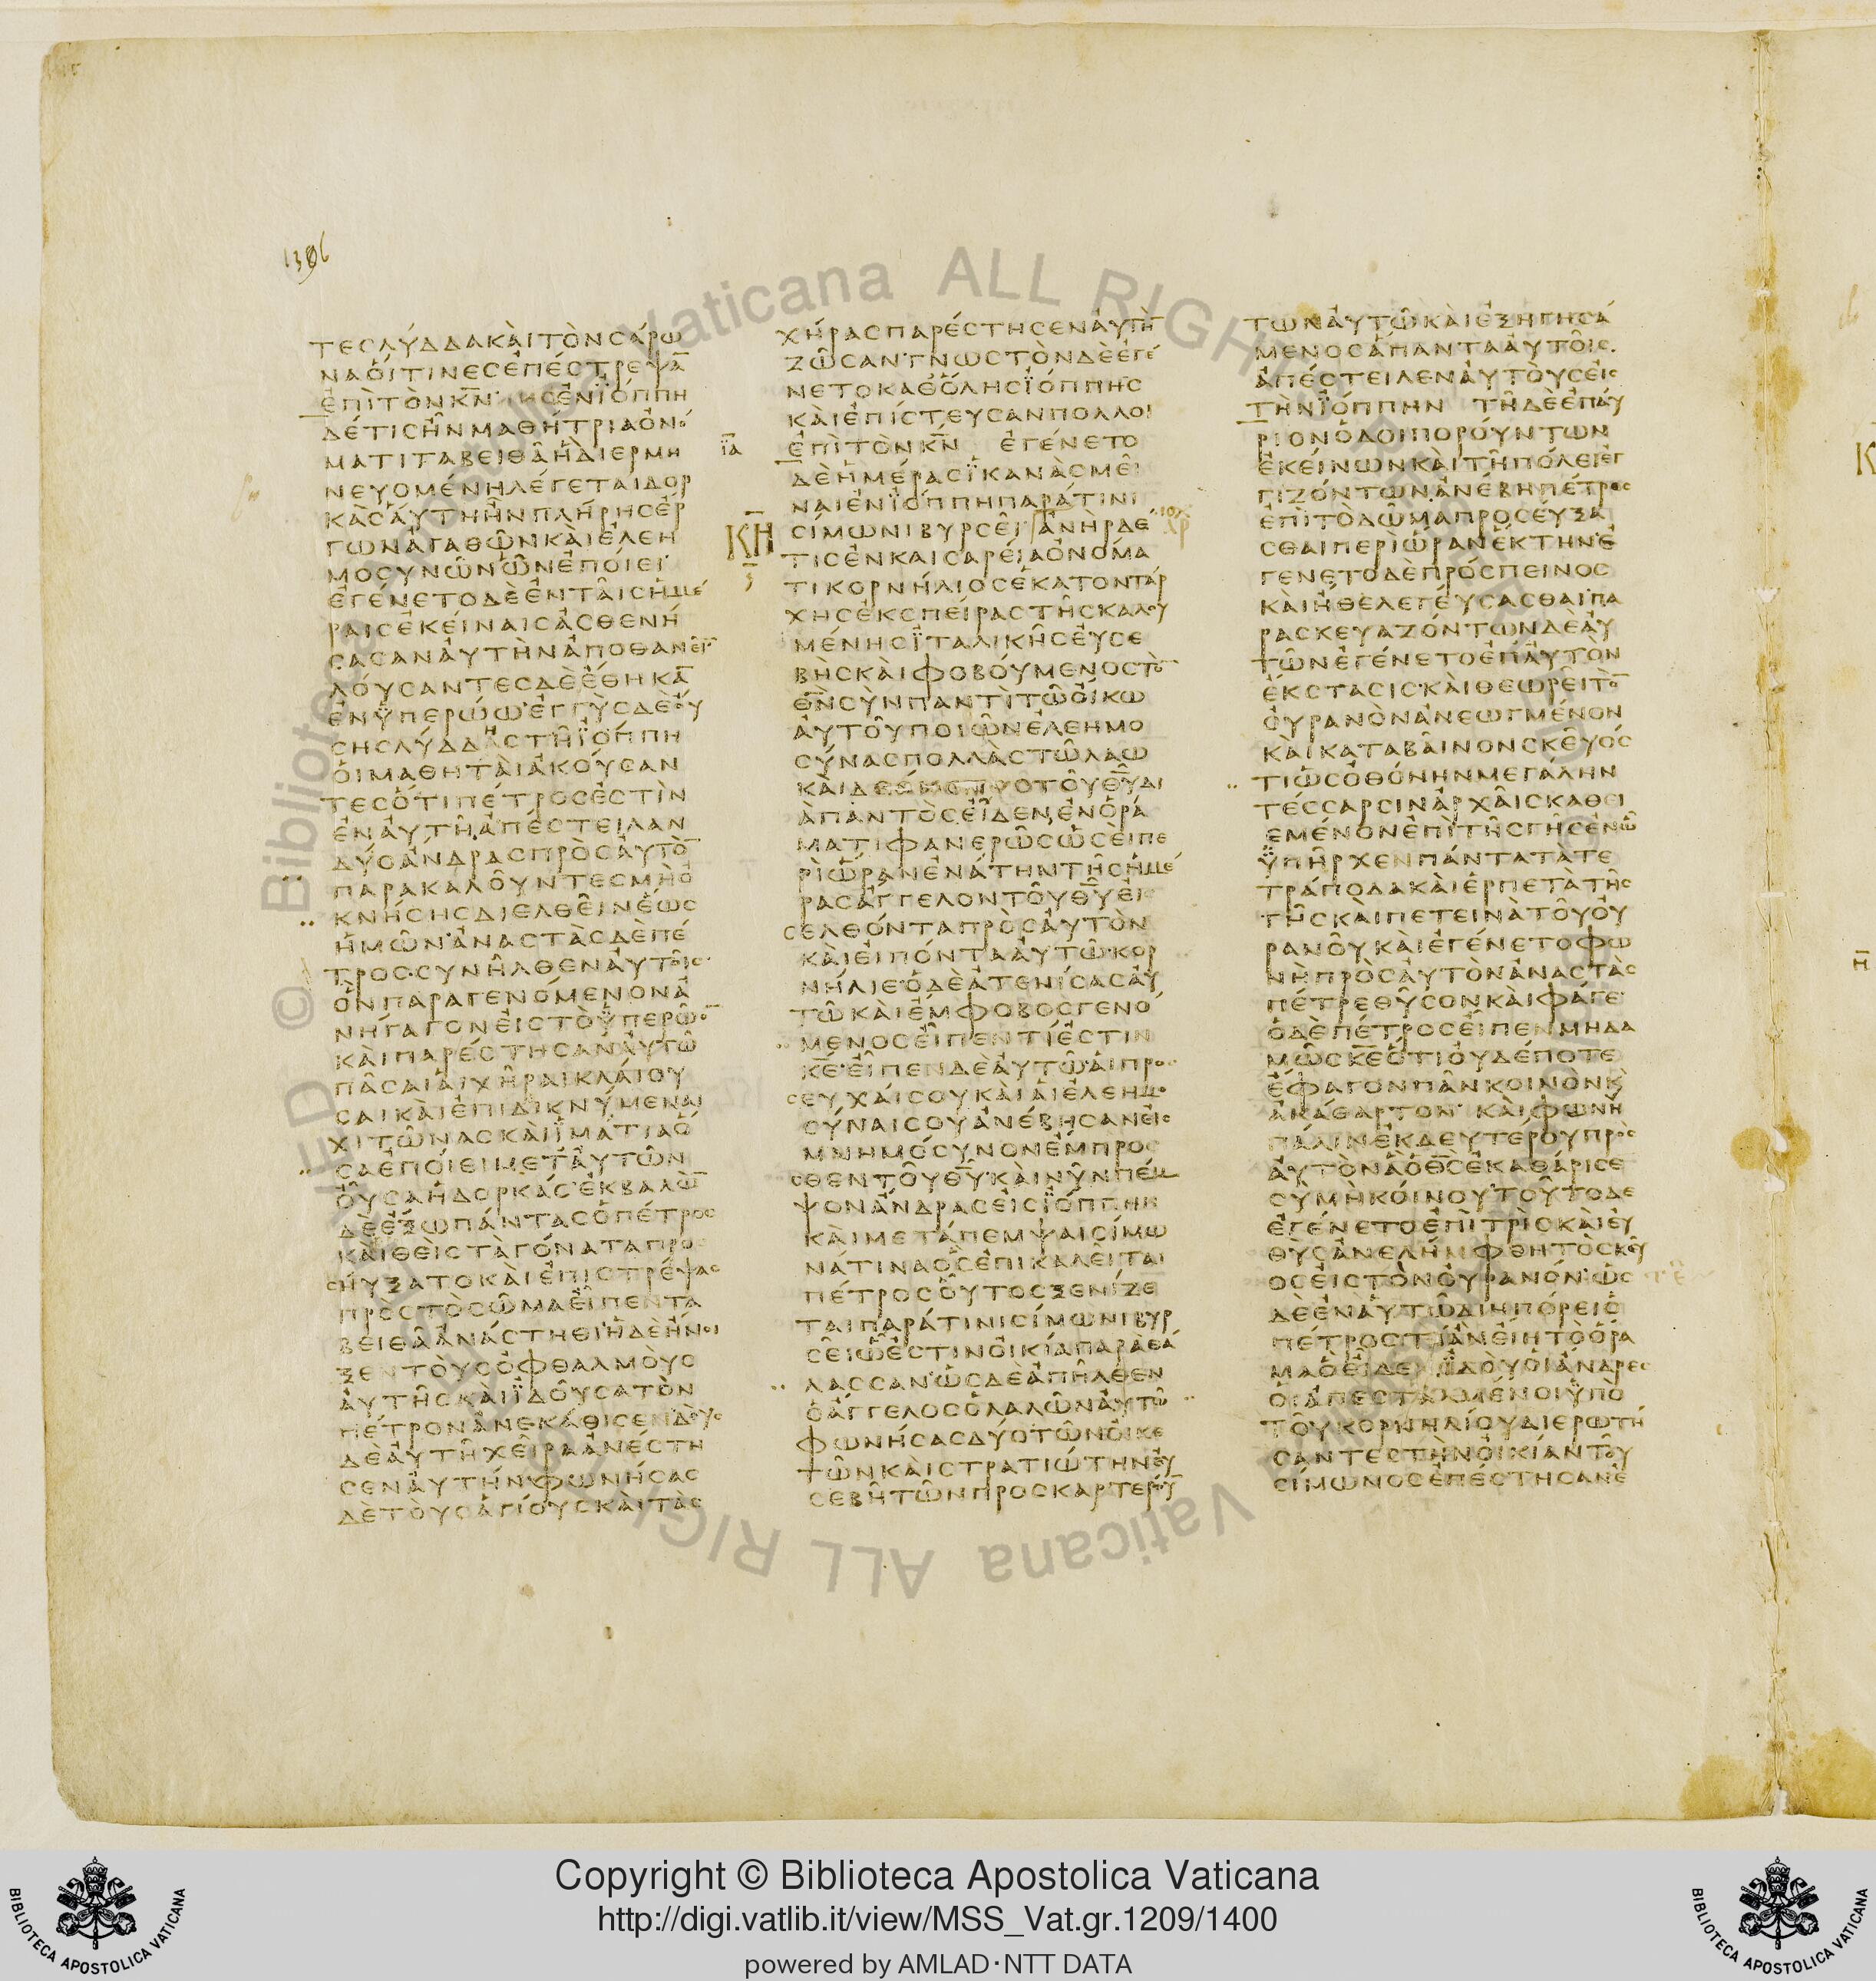 1386
ΤΕΣΛΥΔΔΑΚΑΙΤΟΝϹΑΡΩ
ΝΑΟΙΤΙΝΕϹΕΠΕϹΤΡΕΨΑ̅
ΕΠΙΤΟΝΚ̅Ν̅ ΕΝΙΟΠΠΗ
ΔΕΤΙϹΗΝΜΑΘΗΤΡΙΑΟΝΟ
ΜΑΤΙΤΑΒΕΙΘΑΗΔΙΕΡΜΗ
ΝΕΥΟΜΕΝΗΛΕΓΕΤΑΙΔΟΡ
ΚΑϹΑΥΤΗΗΝΠΛΗΡΗϹΕΡ
ΓΩΝΑΓΑΘΩΝΚΑΙΕΛΕΗ
ΜΟϹΥΝΩΝΩΝΕΠΟΙΕΙ
ΕΓΕΝΕΤΟΔΕΕΝΤΑΙϹΗΜΕ
ΡΑΙϹΕΚΕΙΝΑΙϹΑϹΘΕΝΗ
ϹΑϹΑΝΑΥΤΗΝΑΠΟΘΑΝΕΙ̅
ΛΟΥϹΑΝΤΕϹΔΕΕΘΗΚΑ̅
ΕΝΥΠΕΡΩΩΕΓΓΥϹΔΕΟΥ
ϹΗϹΛΥΔΔΗϹΤΗΙΟΠΠΗ
ΟΙΜΑΘΗΤΑΙΑΚΟΥϹΑΝ
ΤΕϹΟΤΙΠΕΤΡΟϹΕϹΤΙΝ
ΕΝΑΥΤΗΑΠΕϹΤΕΙΛΑΝ
ΔΥΟΑΝΔΡΑϹΠΡΟϹΑΥΤΟ̅
ΠΑΡΑΚΑΛΟΥΝΤΕϹΜΗΟ
ΚΝΗϹΗϹΔΙΕΛΘΕΙΝΕΩϹ
ΗΜΩΝΑΝΑϹΤΑϹΔΕΠΕ
ΤΡΟϹϹΥΝΗΛΘΕΝΑΥΤΟΙϹ
ΟΝΠΑΡΑΓΕΝΟΜΕΝΟΝΑ
ΝΗΓΑΓΟΝΕΙϹΤΟΥΠΕΡΩΟ̅
ΚΑΙΠΑΡΕϹΤΗϹΑΝΑΥΤΩ
ΠΑϹΑΙΑΙΧΗΡΑΙΚΛΑΙΟΥ
ϹΑΙΚΑΙΕΠΙΔΙΚΝΥΜΕΝΑΙ
ΧΙΤΩΝΑϹΚΑΙΙΜΑΤΙΑΟ
ϹΑΕΠΟΙΕΙΜΕΤΑΥΤΩΝ
ΟΥϹΑΗΔΟΡΚΑϹΕΚΒΑΛΩ̅
ΔΕΕΞΩΠΑΝΤΑϹΟΠΕΤΡΟϹ
ΚΑΙΘΕΙϹΤΑΓΟΝΑΤΑΠΡΟ
ϹΗΥΞΑΤΟΚΑΙΕΠΙϹΤΡΕΨΑϹ
ΠΡΟϹΤΟϹΩΜΑΕΙΠΕΝΤΑ
ΒΕΙΘΑΑΝΑϹΤΗΘΙΗΔΕΗΝΟΙ
ΞΕΝΤΟΥϹΟΦΘΑΛΜΟΥϹ
ΑΥΤΗϹΚΑΙΙΔΟΥϹΑΤΟΝ
ΠΕΤΡΟΝΑΝΕΚΑΘΙϹΕΝΔΟΥϹ
ΔΕΑΥΤΗΧΕΙΡΑΑΝΕϹΤΗ
ϹΕΝΑΥΤΗΝΦΩΝΗϹΑϹ
ΔΕΤΟΥϹΑΓΙΟΥϹΚΑΙΤΑϹ
ΧΗΡΑϹΠΑΡΕϹΤΗϹΕΝΑΥΤΗ̅
ΖΩϹΑΝΓΝΩϹΤΟΝΔΕΕΓΕ
ΝΕΤΟΚΑΘΟΛΗϹΙΟΠΠΗϹ
ΚΑΙΕΠΙϹΤΕΥϹΑΝΠΟΛΛΟΙ
ΙΑ ΕΠΙΤΟΝΚ̅Ν̅ ΕΓΕΝΕΤΟ
ΔΕΗΜΕΡΑϹΙΚΑΝΑϹΜΕΙ
ΝΑΙΕΝΙΟΠΠΗΠΑΡΑΤΙΝΙ
ΚΗ ϹΙΜΩΝΙΒΥΡϹΕΙ ΑΝΗΡΔΕ
ΤΙϹΕΝΚΑΙϹΑΡΕΙΑΟΝΟΜΑ
ΤΙΚΟΡΝΗΛΙΟϹΕΚΑΤΟΝΤΑΡ
ΧΗϹΕΚϹΠΕΙΡΑϹΤΗϹΚΑΛΟΥ
ΜΕΝΗϹΙΤΑΛΙΚΗϹΕΥϹΕ
ΒΗϹΚΑΙΦΟΒΟΥΜΕΝΟϹΤΟ̅
Θ̅Ν̅ϹΥΝΠΑΝΤΙΤΩΟΙΚΩ
ΑΥΤΟΥΠΟΙΩΝΕΛΕΗΜΟ
ϹΥΝΑϹΠΟΛΛΑϹΤΩΛΑΩ
ΚΑΙΔΕΟΜΕΝΟϹΤΟΥΘ̅Υ̅ΔΙ
ΑΠΑΝΤΟϹΕΙΔΕΝΕΝΟΡΑ
ΜΑΤΙΦΑΝΕΡΩϹΩϹΕΙΠΕ
ΡΙΩΡΑΝΕΝΑΤΗΝΤΗϹΗΜΕ
ΡΑϹΑΓΓΕΛΟΝΤΟΥΘ̅Υ̅ΕΙ
ϹΕΛΘΟΝΤΑΠΡΟϹΑΥΤΟΝ
ΚΑΙΕΙΠΟΝΤΑΑΥΤΩΚΟΡ
ΝΗΛΙΕΟΔΕΑΤΕΝΙϹΑϹΑΥ
ΤΩΚΑΙΕΜΦΟΒΟϹΓΕΝΟ
ΜΕΝΟϹΕΙΠΕΝΤΙΕϹΤΙΝ
Κ̅Ε̅ΕΙΠΕΝΔΕΑΥΤΩΑΙΠΡΟ
ϹΕΥΧΑΙϹΟΥΚΑΙΑΙΕΛΕΗΜΟ
ϹΥΝΑΙϹΟΥΑΝΕΒΗϹΑΝΕΙϹ
ΜΝΗΜΟϹΥΝΟΝΕΜΠΡΟϹ
ΘΕΝΤΟΥΘ̅Υ̅ΚΑΙΝΥΝΠΕΜ
ΨΟΝΑΝΔΡΑϹΕΙϹΙΟΠΠΗΝ
ΚΑΙΜΕΤΑΠΕΜΨΑΙϹΙΜΩ
ΝΑΤΙΝΑΟϹΕΠΙΚΑΛΕΙΤΑΙ
ΠΕΤΡΟϹΟΥΤΟϹΞΕΝΙΖΕ
ΤΑΙΠΑΡΑΤΙΝΙϹΙΜΩΝΙΒΥΡ
ϹΕΙΩΕϹΤΙΝΟΙΚΙΑΠΑΡΑΘΑ
ΛΑϹϹΑΝΩϹΔΕΑΠΗΛΘΕΝ
ΟΑΓΓΕΛΟϹΟΛΑΛΩΝΑΥΤΩ
ΦΩΝΗϹΑϹΔΥΟΤΩΝΟΙΚΕ
ΤΩΝΚΑΙϹΤΡΑΤΙΩΤΗΝΕΥ
ϹΕΒΗΤΩΝΠΡΟϹΚΑΡΤΕΡΟΥ̅
ΤΩΝΑΥΤΩΚΑΙΕΞΗΓΗϹΑ
ΜΕΝΟϹΑΠΑΝΤΑΑΥΤΟΙϹ
ΑΠΕϹΤΕΙΛΕΝΑΥΤΟΥϹΕΙϹ
ΤΗΝΙΟΠΠΗΝ ΤΗΔΕΕΠΑΥ
ΡΙΟΝΟΔΟΙΠΟΡΟΥΝΤΩΝ
ΕΚΕΙΝΩΝΚΑΙΤΗΠΟΛΕΙΕΓ
ΓΙΖΟΝΤΩΝΑΝΕΒΗΠΕΤΡΟϹ
ΕΠΙΤΟΔΩΜΑΠΡΟϹΕΥΞΑ
ϹΘΑΙΠΕΡΙΩΡΑΝΕΚΤΗΝΕ
ΓΕΝΕΤΟΔΕΠΡΟϹΠΕΙΝΟϹ
ΚΑΙΗΘΕΛΕΓΕΥϹΑϹΘΑΙΠΑ
ΡΑϹΚΕΥΑΖΟΝΤΩΝΔΕΑΥ
ΤΩΝΕΓΕΝΕΤΟΕΠΑΥΤΟΝ
ΕΚϹΤΑϹΙϹΚΑΙΘΕΩΡΕΙΤΟ̅
ΟΥΡΑΝΟΝΑΝΕΩΓΜΕΝΟΝ
ΚΑΙΚΑΤΑΒΑΙΝΟΝϹΚΕΥΟϹ
ΤΙΩϹΟΘΟΝΗΝΜΕΓΑΛΗΝ
ΤΕϹϹΑΡϹΙΝΑΡΧΑΙϹΚΑΘΕΙ
ΕΜΕΝΟΝΕΠΙΤΗϹΓΗϹΕΝΩ
ΥΠΗΡΧΕΝΠΑΝΤΑΤΑΤΕ
ΤΡΑΠΟΔΑΚΑΙΕΡΠΕΤΑΤΗϹ
ΓΗϹΚΑΙΠΕΤΕΙΝΑΤΟΥΟΥ
ΡΑΝΟΥΚΑΙΕΓΕΝΕΤΟΦΩ
ΝΗΠΡΟϹΑΥΤΟΝΑΝΑϹΤΑϹ
ΠΕΤΡΕΘΥϹΟΝΚΑΙΦΑΓΕ
ΟΔΕΠΕΤΡΟϹΕΙΠΕΝΜΗΔΑ
ΜΩϹΚ̅Ε̅ΟΤΙΟΥΔΕΠΟΤΕ
ΕΦΑΓΟΝΠΑΝΚΟΙΝΟΝΚ
ΑΚΑΘΑΡΤΟΝ ΚΑΙΦΩΝΗ
ΠΑΛΙΝΕΚΔΕΥΤΕΡΟΥΠΡΟϹ
ΑΥΤΟΝΑΟΘ̅Ϲ̅ΕΚΑΘΑΡΙϹΕ
ϹΥΜΗΚΟΙΝΟΥΤΟΥΤΟΔΕ
ΕΓΕΝΕΤΟΕΠΙΤΡΙϹΚΑΙΕΥ
ΘΥϹΑΝΕΛΗΜΦΘΗΤΟϹΚΕΥ
ΟϹΕΙϹΤΟΝΟΥΡΑΝΟΝΩϹ
ΔΕΕΝΑΥΤΩΔΙΗΠΟΡΕΙΟ
ΠΕΤΡΟϹΤΙΑΝΕΙΗΤΟΟΡΑ
ΜΑΟΕΙΔΕΝΙΔΟΥΟΙΑΝΔΡΕϹ
ΟΙΑΠΕϹΤΑΛΜΕΝΟΙΥΠΟ
ΤΟΥΚΟΡΝΗΛΙΟΥΔΙΕΡΩΤΗ
ϹΑΝΤΕϹΤΗΝΟΙΚΙΑΝΤΟΥ
ϹΙΜΩΝΟϹΕΠΕϹΤΗϹΑΝΕ
Copyright © Biblioteca Apostolica Vaticana
http://digi.vatlib.it/view/MSS_Vat.gr.1209/1400
powered by AMLAD·NTT DATA